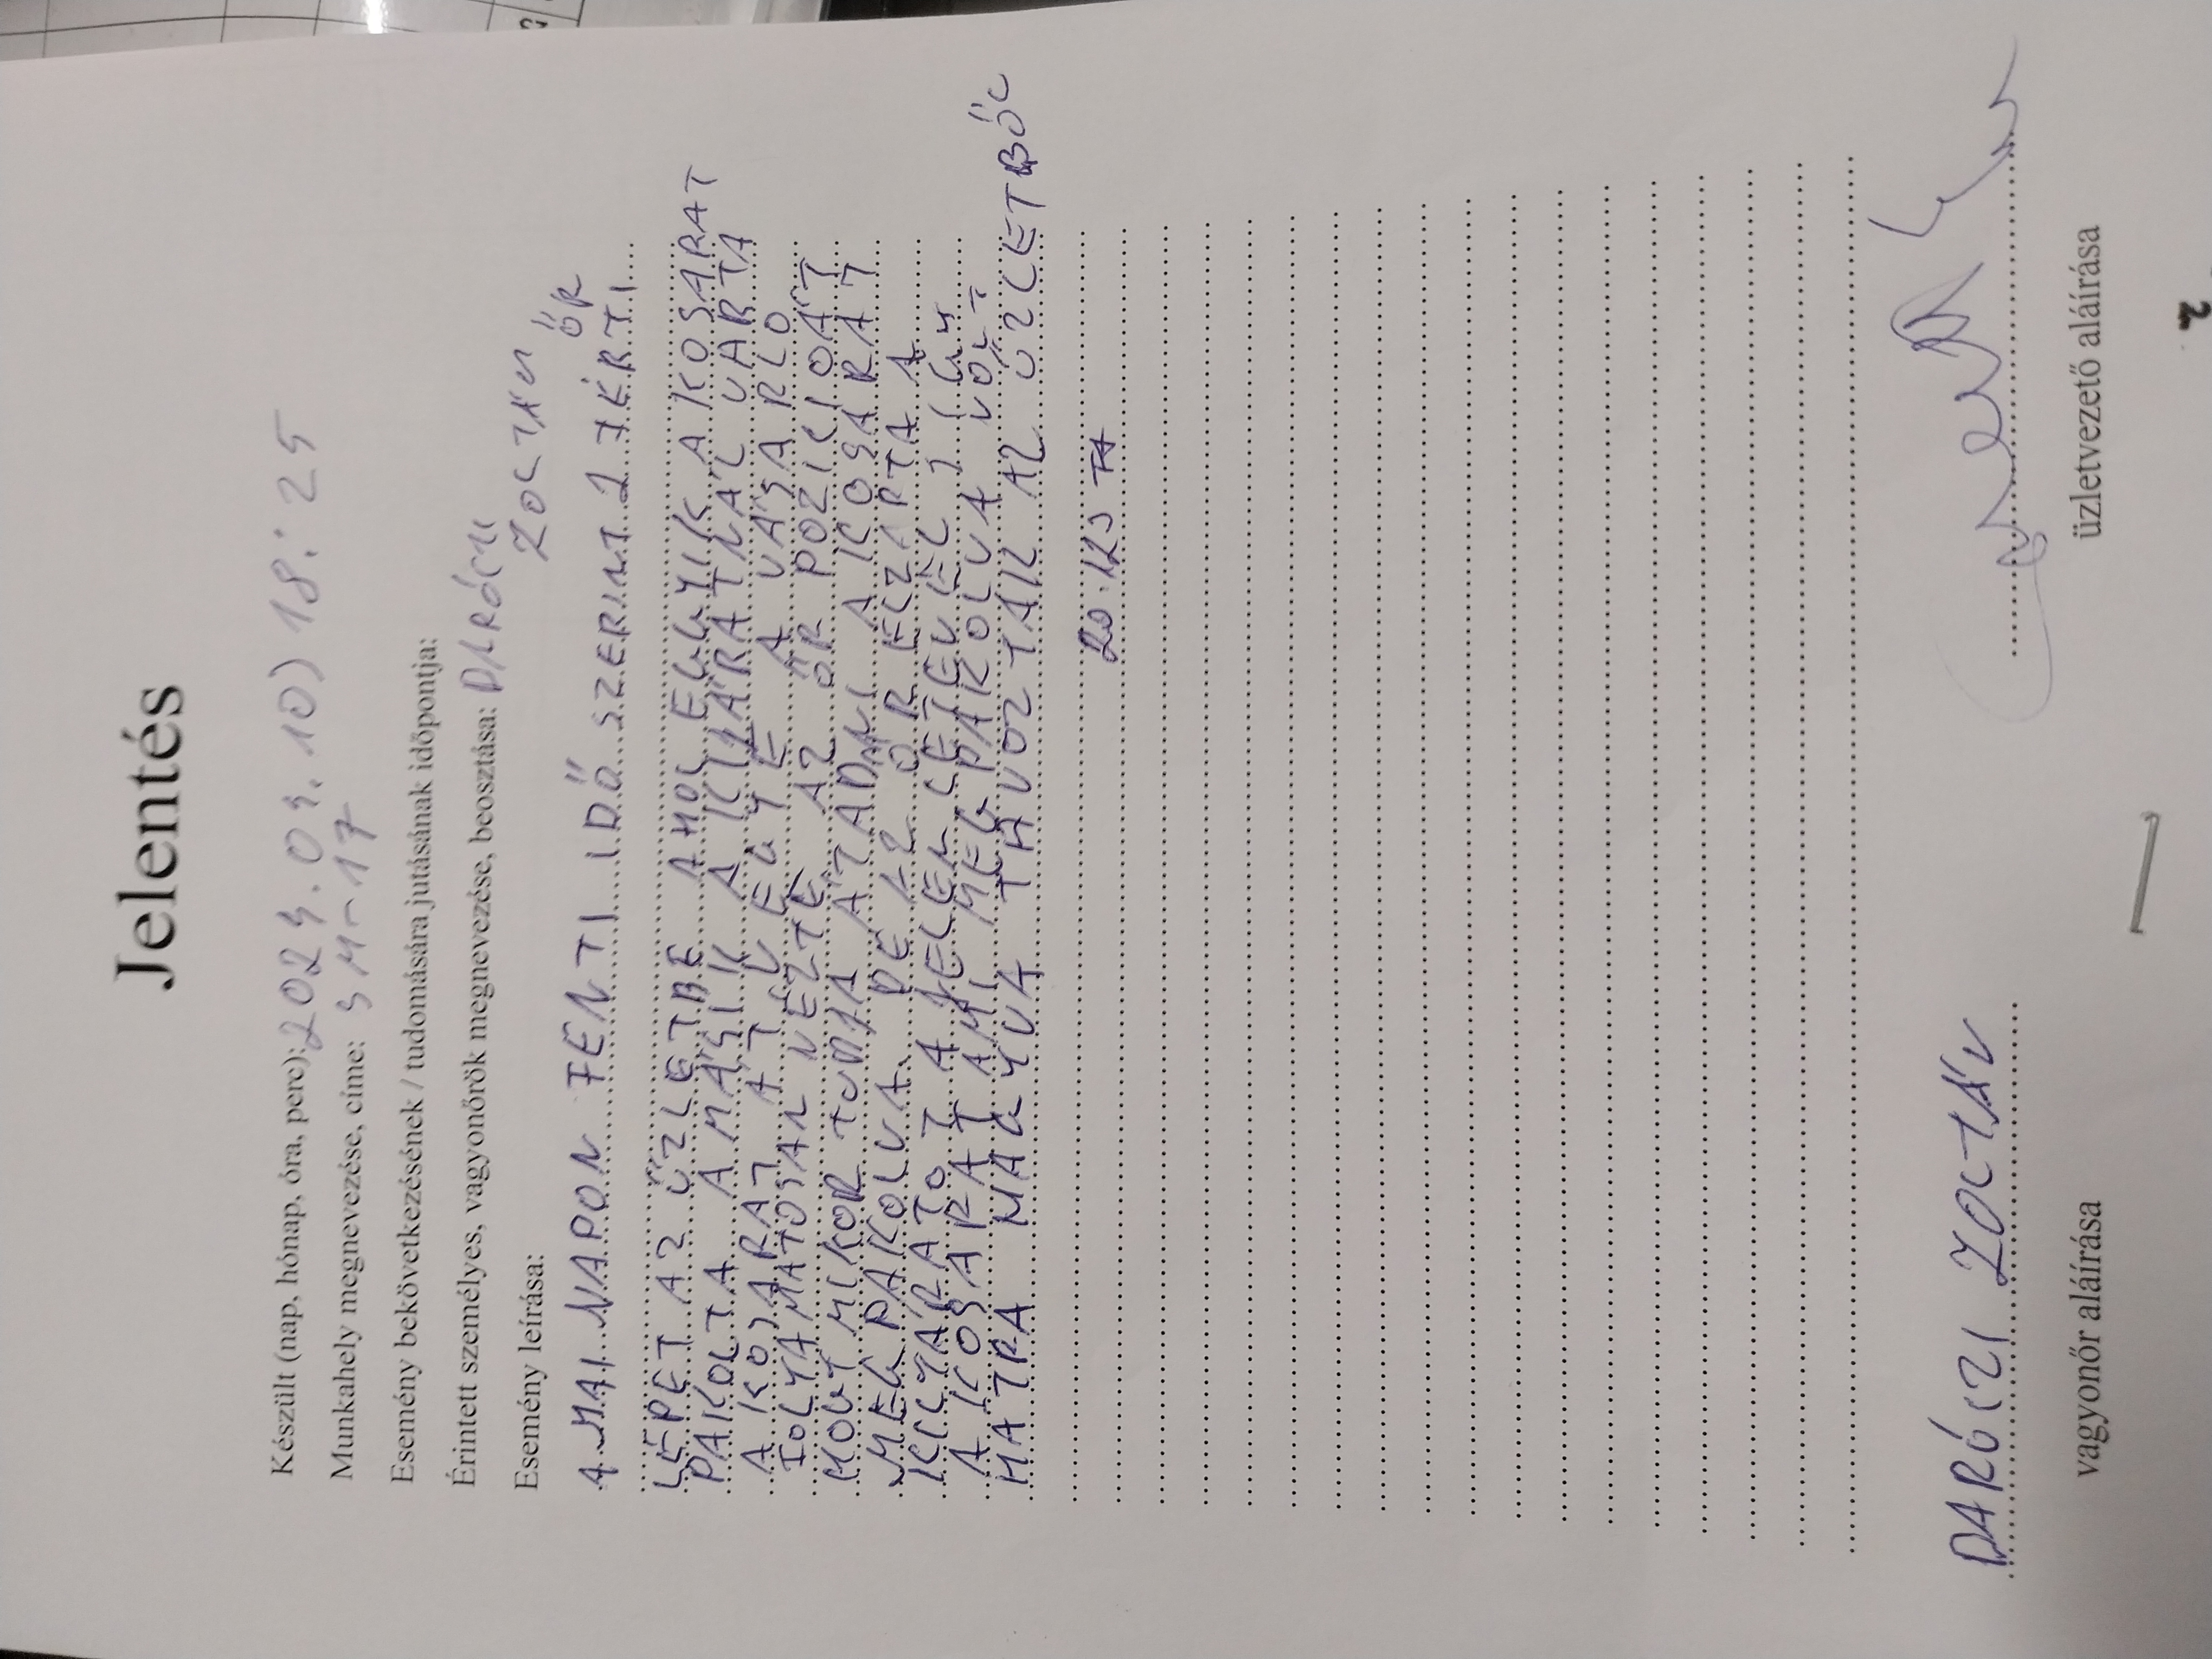 Jelentés
Készült (nap, hónap, óra, perc): 2024.09.10) 18:25
Munkahely megnevezése, címe: SM-17
Esemény bekövetkezésének / tudomására jutásának időpontja:
Érintett személyes, vagyonőrök megnevezése, beosztása: DARÓCZI
ZOLTÁN ŐR
Esemény leírása:
A MAI NAPON FENTI IDŐ SZERINT 2 FÉRFI
LÉPET AZ ÜZLETBE AHOL EGGYIK A KOSARAT
PAKOLTA A MÁSIK A KIJÁRATNÁL VÁRTA
A KOSARAT ÁTVEGYE A VÁSÁRLÓ
FOLYAMATOSAN NÉZTE AZ ŐR POZICIOÁT
HOGY MIKOR TUDJA ÁTADNI A KOSARAT
MEGPAKOLVA. DE AZ ŐR ELZÁRTA A
KIJÁRATOT A JELENLÉTÉVEL IGY
A KOSARAT AMI MEG PAKOLVA VOLT
HATRA HAGYVA TÁVOZTAK AZ ÜZLETBŐL
DARÓCZI ZOLTÁN
vagyonőr aláírása
üzletvezető aláírása
2.